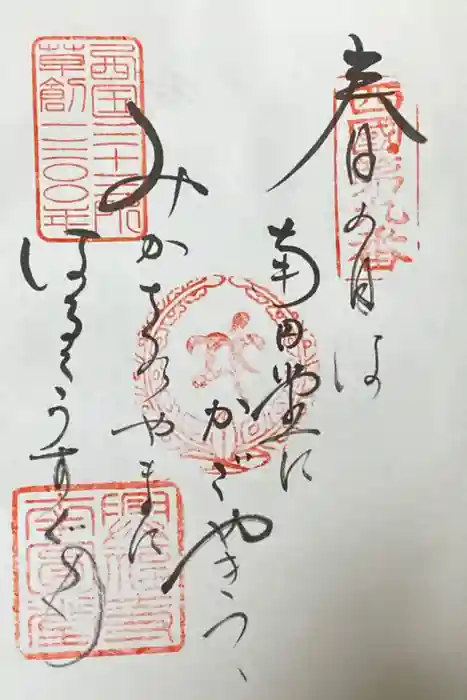 西國第九番
春の日は
南円堂に
かゞやきつゝ
みかさのやまに
はるゝうすぐも
西国三十三所
草創一三〇〇年
興福寺
南圓堂